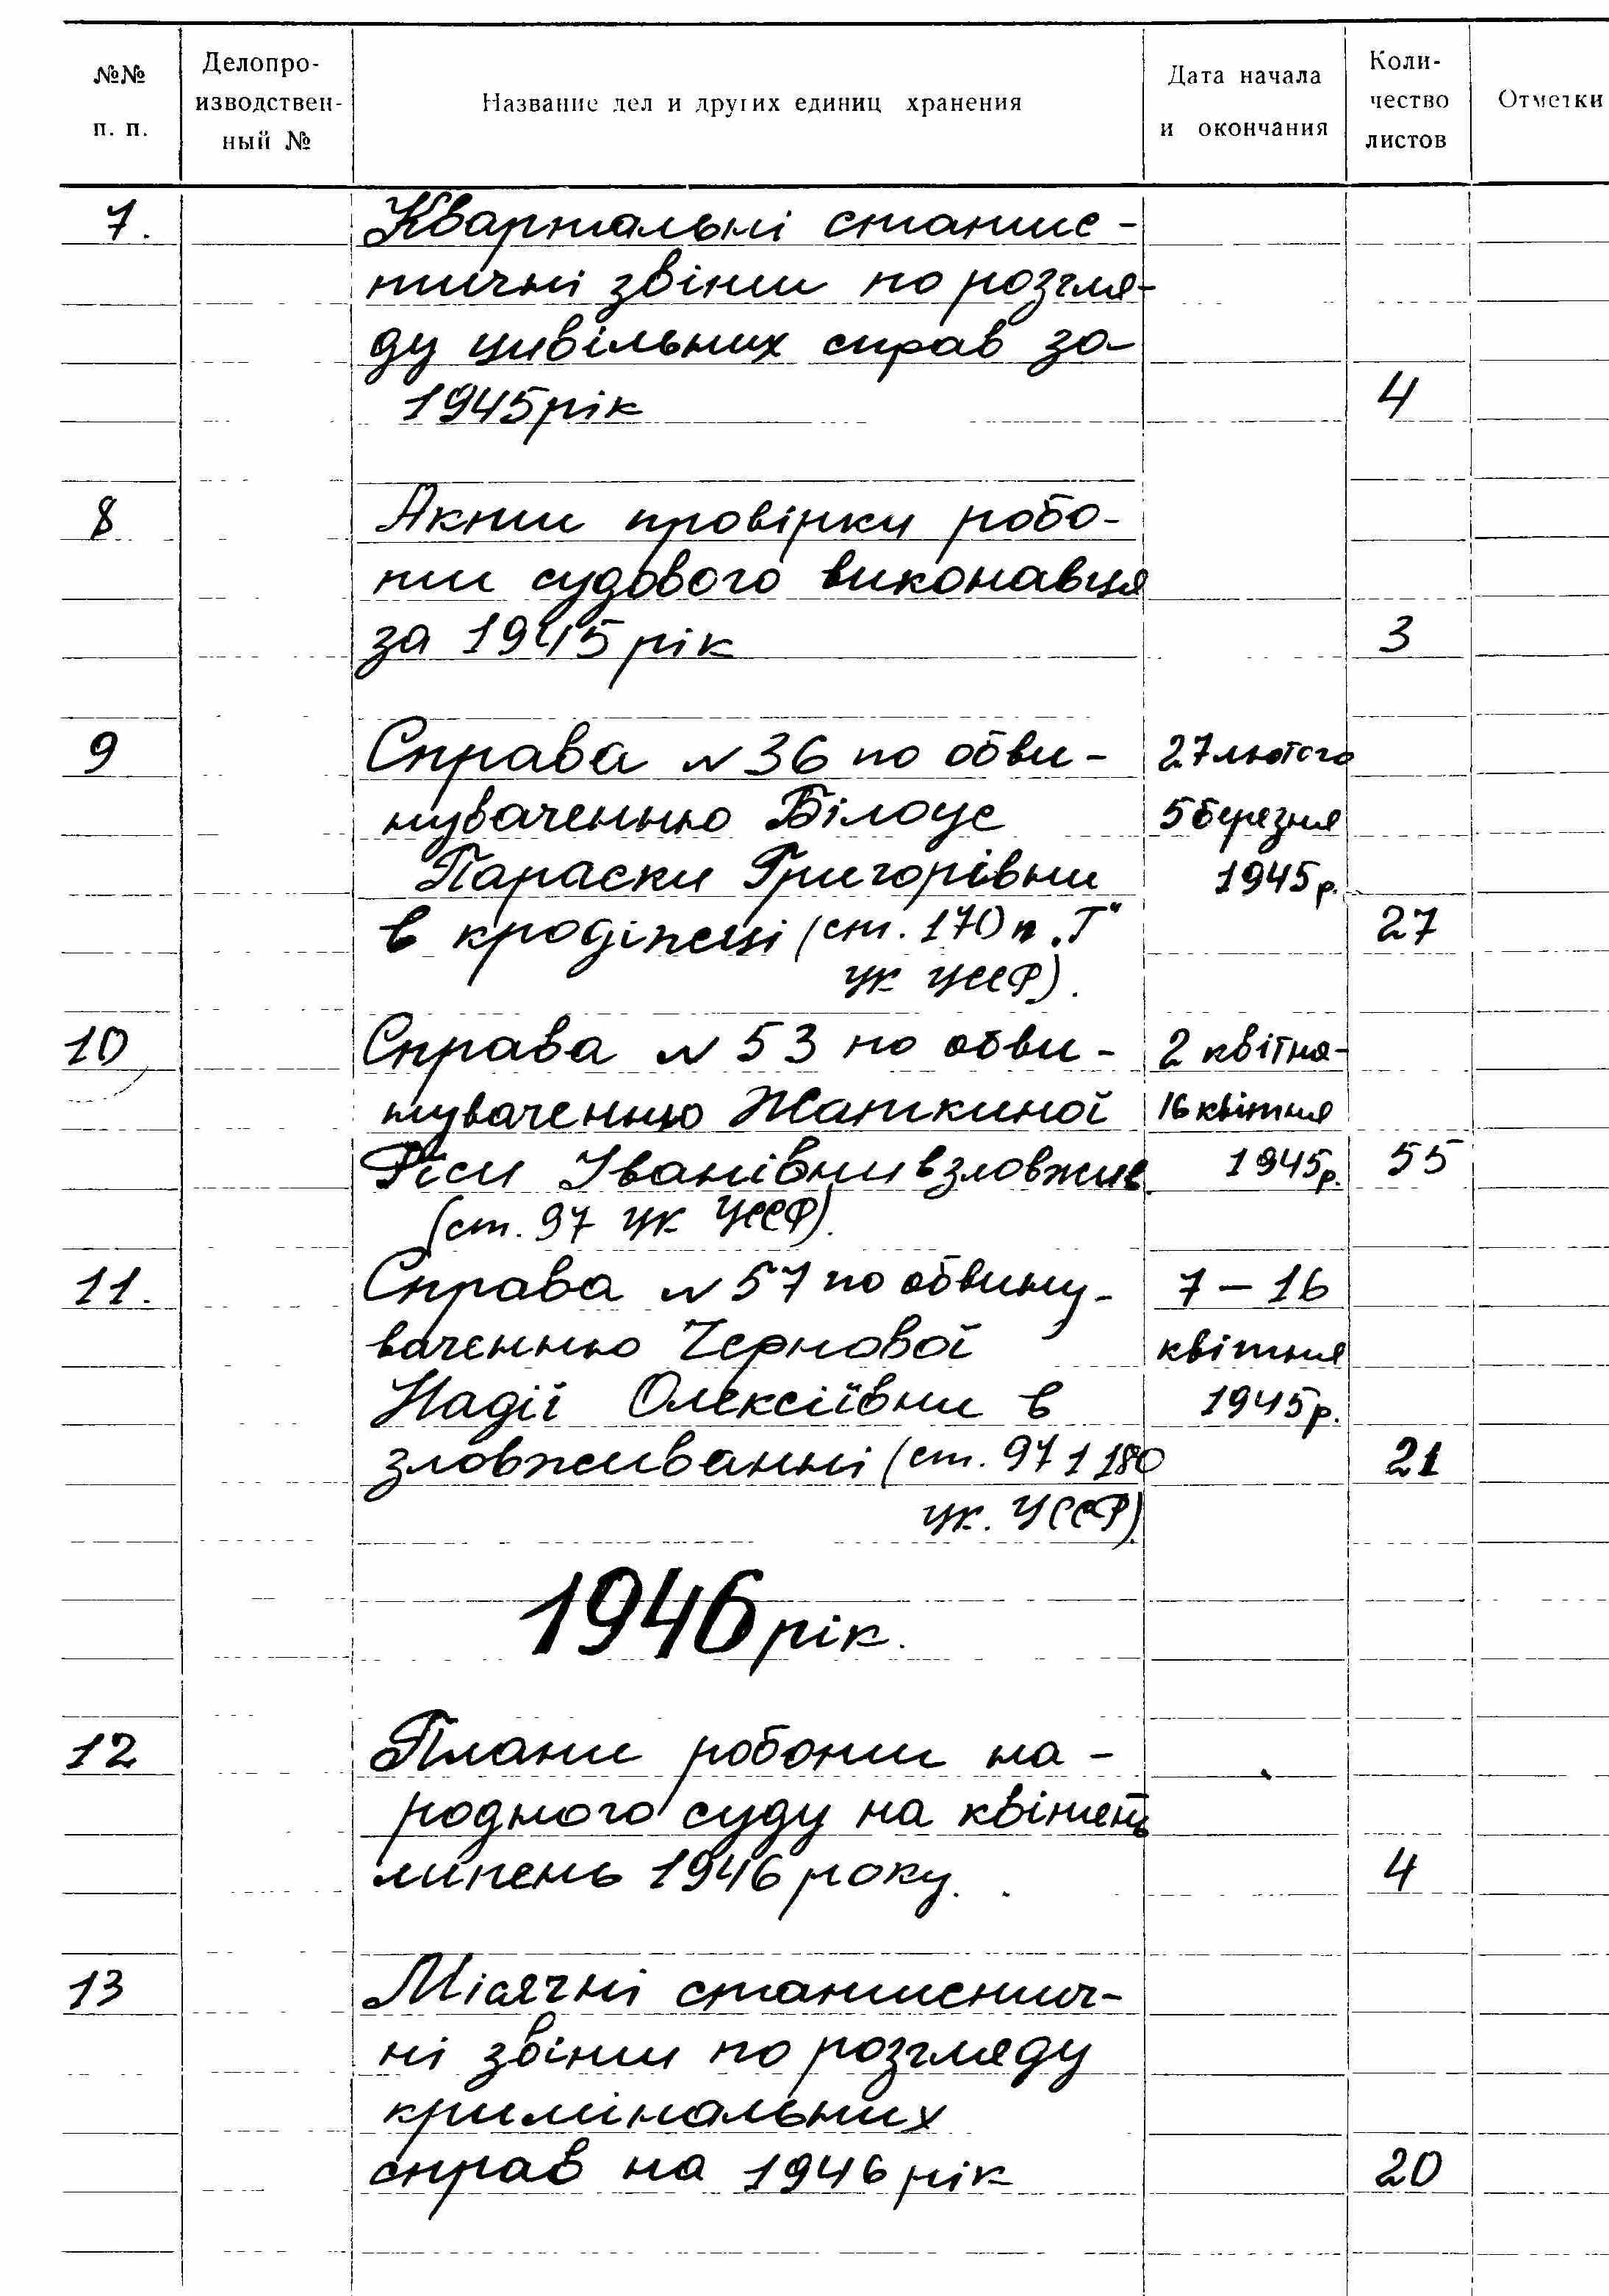 №№ п. п.
Делопро-
изводствен-
ный №
Название дел и других единиц хранения
Дата начала
и окончания
Коли-
чество
листов
Отметки
7. Квартальні статис-
тичні звіти по розгля-
ду цивільних справ за
1945 рік 4
8 Акти провірки робо-
ти судового виконавця
за 1945 рік 3
9 Справа № 36 по обви- 27 лютого
нуваченню Білоус 5 березня
Параски Григорівни 1945 р.
в крадіжці (ст. 170 п. "Г" 27
УК УССР).
10 Справа № 53 по обви- 2 квітня-
нуваченню Жаткиної 16 квітня
Раси Іванівни в зловжив 1945 р. 55
(ст. 97 УК УССР).
11. Справа № 57 по обвину- 7 – 16
ваченню Чернової квітня
Надії Олексіївни в 1945 р.
зловживанні (ст. 97 і 180 21
УК. УССР)
1946 рік.
12 Плани роботи на-
родного суду на квітень
липень 1946 року. 4
13 Місячні статистич-
ні звіти по розгляду
кримінальних
справ на 1946 рік 20